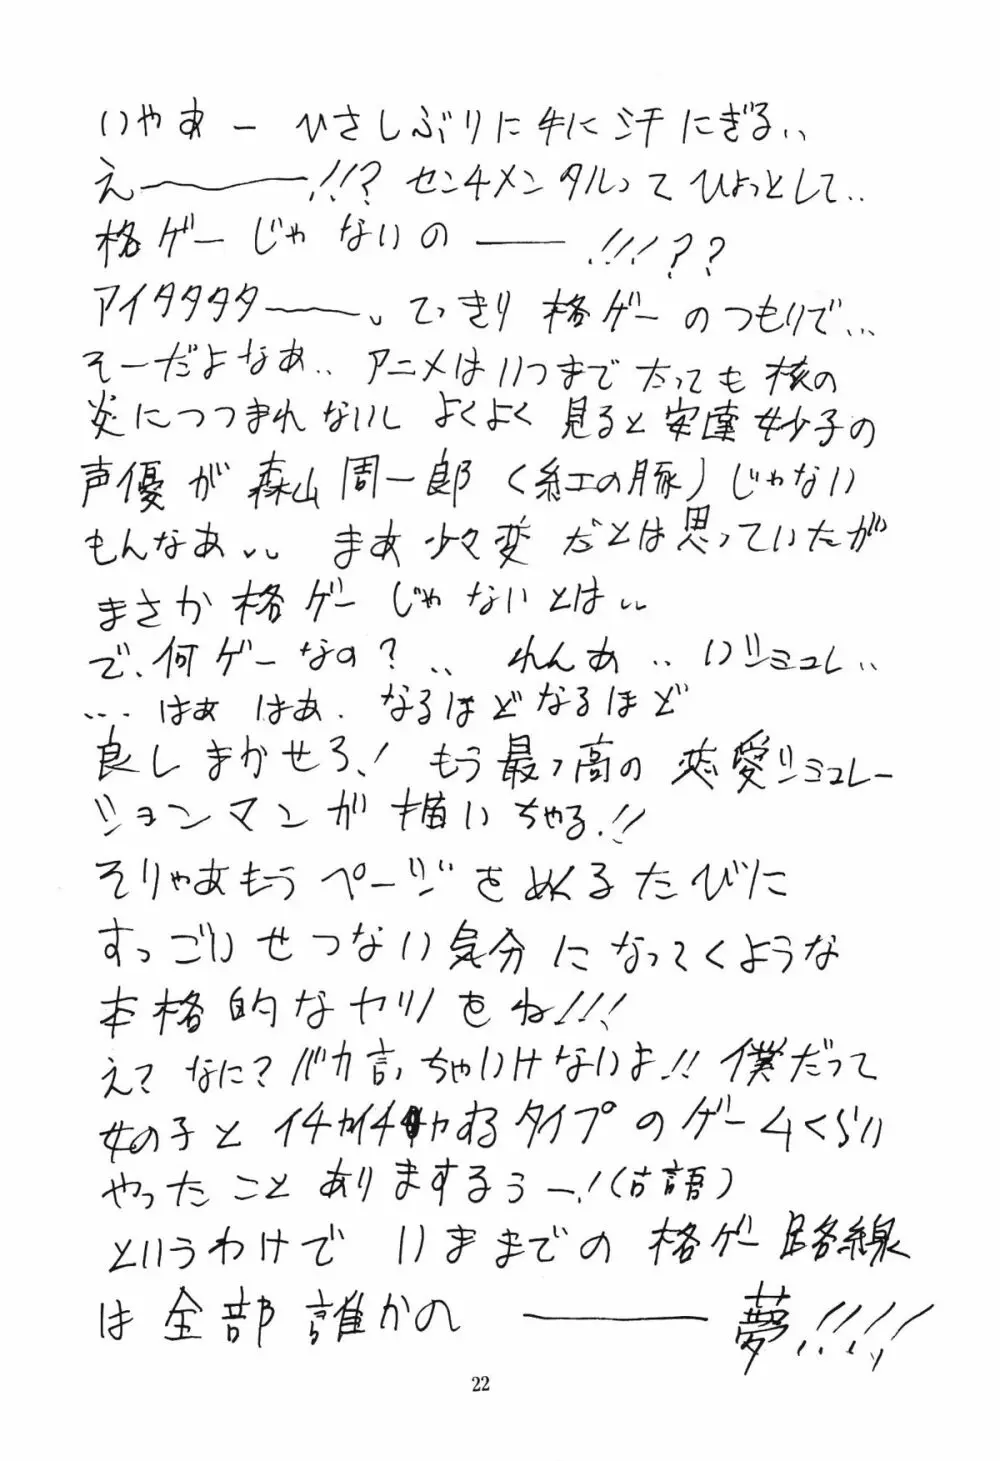 いやあー ひさしぶりに手に汗にぎる、、
え〜〜〜!!? センチメンタルってひょっとして..
格ゲーじゃないの――!!!??
アイタタタタ〜〜、てっきり格ゲーのつもりで...
そーだよなあ.. アニメはいつまでたっても核の
炎につつまれないし よくよく見ると安達妙子の
声優が森山周一郎(紅の豚)じゃない
もんなあ、、 まあ少々変だとは思っていたが
まさか格ゲーじゃないとは、、
で、何ゲーなの? .. れんあ .. いシミュレ..
... はぁ はぁ. なるほどなるほど
良しまかせろ! もう最っ高の恋愛シミュレー
ションマンが描いちゃる!!
そりゃあもうページをめくるたびに
すっごいせつない気分になってくような
本格的なヤツをね!!!
え? なに? バカ言っちゃいけないよ!! 僕だって
女の子とイチャイチャするタイプのゲームくらい
やったことありまするぅー!(古語)
というわけでいままでの格ゲー路線
は全部誰かの――夢!!!!
22